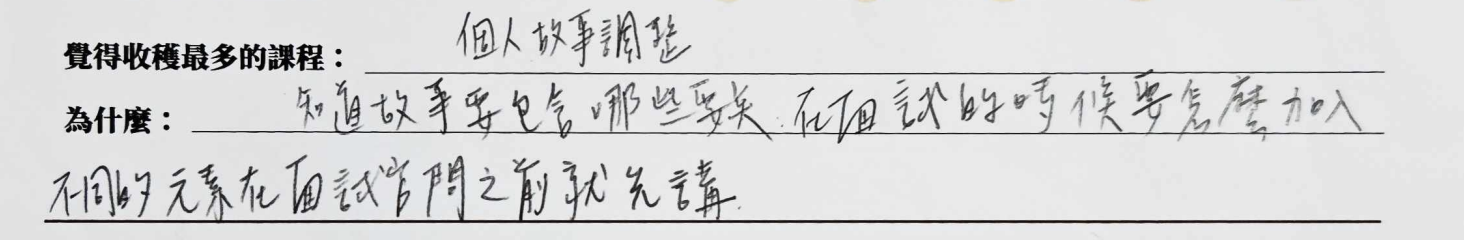 覺得收穫最多的課程：個人故事調整
為什麼：知道故事要包含哪些要矣.在面試的時候要怎麼加入
不同的元素在面試官問之前就先講.